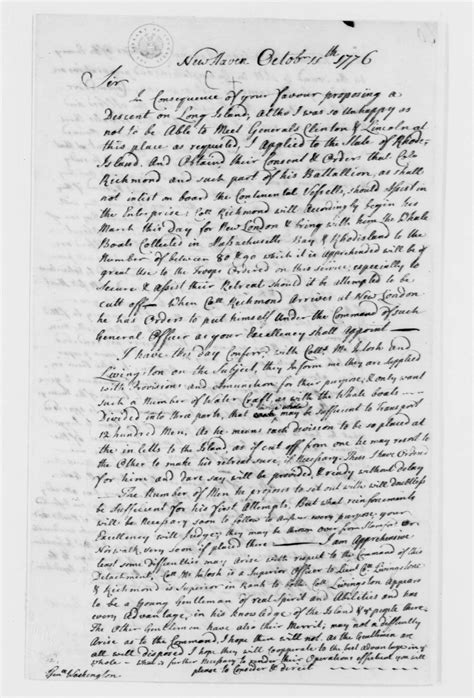 New Haven Octobr 11th 1776
Sir
In Consequence of your favour proposing a
Descent on Long Island, altho I was so Unhappy as
not to be Able to Meet Generals Clinton & Lincoln at
this place as requested, I applied to the State of Rhode
Island, And Obtained their Consent & Orders that Colo
Richmond and such part of his Battallion, as shall
not inlist on board the Continental Vessells, should assist in
the Enterprise; Colo Richmond will Accordingly begin his
March this day for New London & bring with him the Whale
Boats Collected in Massachusetts Bay & Rhode Island to the
Number of between 80 & 90 which it is apprehended will be of
great Use to the Troops Ordered on this service, especially to
Secure & Assist their Retreat should it be attempted to be
cutt off — When Colo Richmond Arrives at New London
he has Orders to put himself Under the Command of such
General Officer as your Excellency shall appoint —
I have this day Conferr'd with Collo McIntosh and
Livingston on the Subject, they Inform me they are supplied
with Provisions and Ammunition for their purpose, & only want
such a Number of Water Craft, as with the Whale boats
Divided into three parts, that each may be sufficient to transport
12 hundred Men, As he means each division to be so placed at
the Island, as if cutt off from one he may resort to
the Other to make his retreat sure, if Necessary. These I have Orderd
for him and dare say will be provided & ready without delay
The Number of Men he proposes to set out with will doubtless
be Sufficient for his first Attempts, But what reinforcements
will be Necessary soon to follow to Answer every purpose, your
Excellency will Judge; they may be thrown over from Stamford or
Norwalk very soon if placed there — I am Apprehensive
least some difficulties may Arise with respect to the Command of this
Detachment, Collo McIntosh is a Superior Officer to Lieut Co. Livingstone
& Richmond is Superior in Rank to both Collo Livingston Appears
to be a Young Gentleman of real Spirit and Abilities and has
every Advantage, in his knowledge of the Island & of the people there
The Other Gentlemen have also their Merrit, may not a difficulty
Arise as to the Command, I hope there will not as the Gentlemen are
all well disposed & I hope they will cooperate to the best advantage in
whole — what is further Necessary to render their Operations effectual you will
please to Consider & direct
Genl Washington